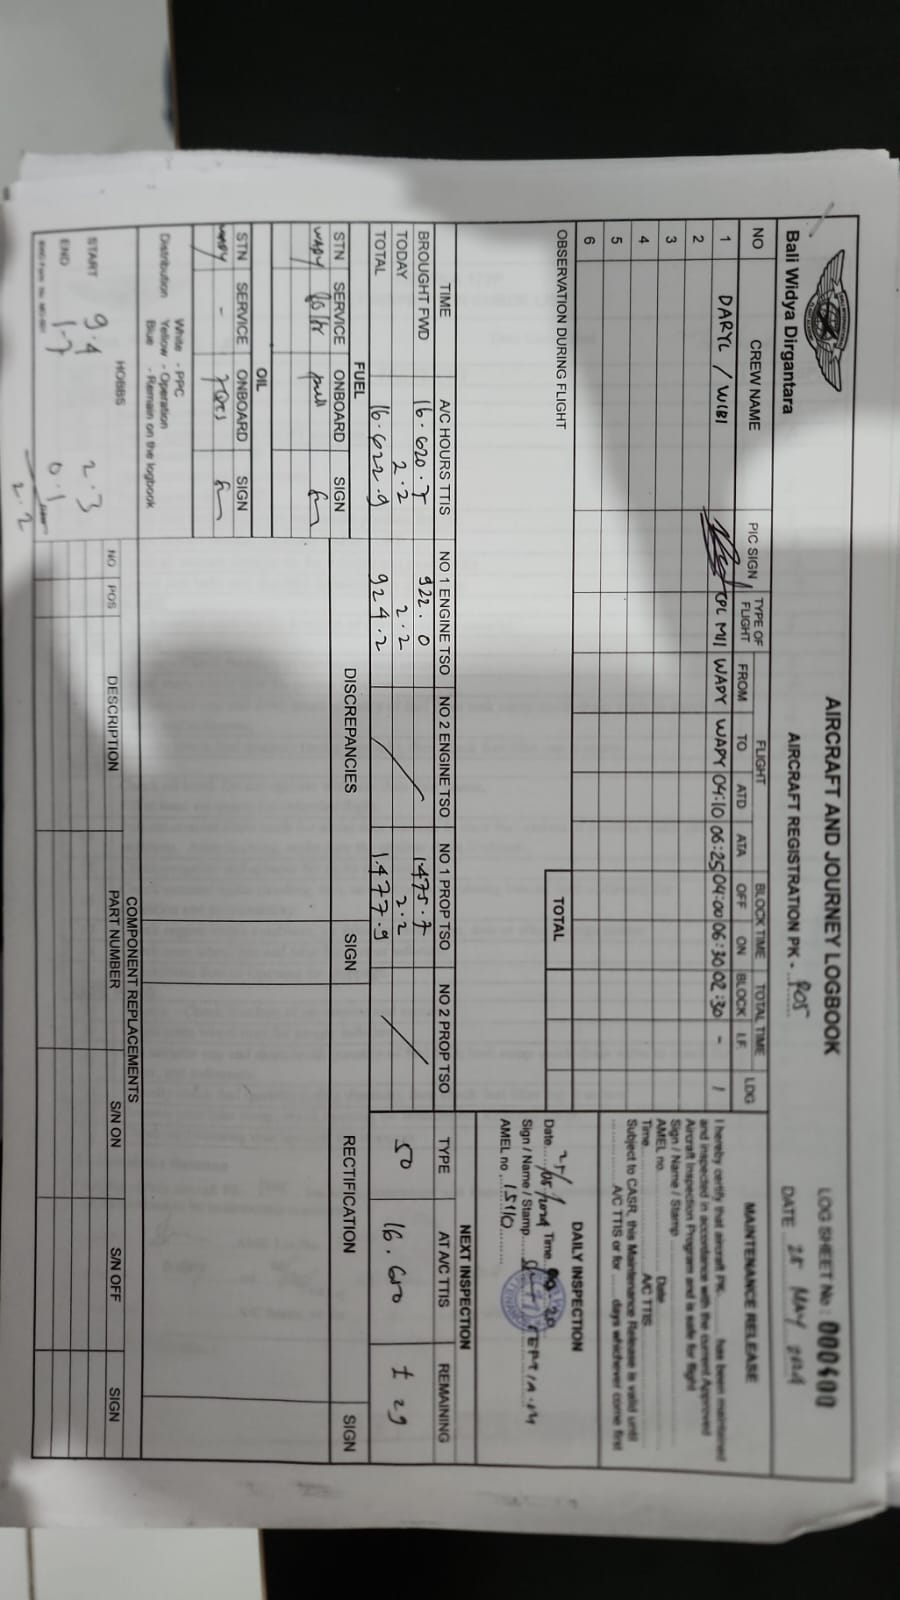 Bali Widya Dirgantara
AIRCRAFT AND JOURNEY LOGBOOK
AIRCRAFT REGISTRATION PK -
LOG SHEET No : 000600
DATE MAY
NO CREW NAME PIC SIGN TYPE OF FLIGHT FLIGHT BLOCK TIME TOTAL TIME LDG
FROM TO ATD ATA OFF ON BLOCK I.F.
1 DARYL / WIBI CPL MII WAPY WAPY 04:10 06:25 04:00 06:30 02:30 - 1
2
3
4
5
6
TOTAL
OBSERVATION DURING FLIGHT
MAINTENANCE RELEASE
I hereby certify that aircraft PK- has been maintained
and inspected in accordance with the current Approved
Aircraft Inspection Program and is safe for flight
Sign / Name / Stamp
AMEL no. Date
Time A/C TTIS
Subject to CASR, this Maintenance Release is valid until
A/C TTIS or for days whichever come first
DAILY INSPECTION
Date Time
Sign / Name / Stamp
AMEL no
TIME A/C HOURS TTIS NO 1 ENGINE TSO NO 2 ENGINE TSO NO 1 PROP TSO NO 2 PROP TSO
BROUGHT FWD 16.620.7 922.0 1475.7
TODAY 2.2 2.2 2.2
TOTAL 16.622.9 924.2 1.477.9
NEXT INSPECTION
TYPE AT A/C TTIS REMAINING
50 16.650 ± 29
FUEL
STN SERVICE ONBOARD SIGN
WAPY full
OIL
STN SERVICE ONBOARD SIGN
WAPY -
DISCREPANCIES SIGN RECTIFICATION SIGN
Distribution White - PPC
Yellow - Operation
Blue - Remain on the logbook
COMPONENT REPLACEMENTS
NO POS DESCRIPTION PART NUMBER S/N ON S/N OFF SIGN
HOBBS
START 9.4 2.3
END 1.7 0.1
2.2